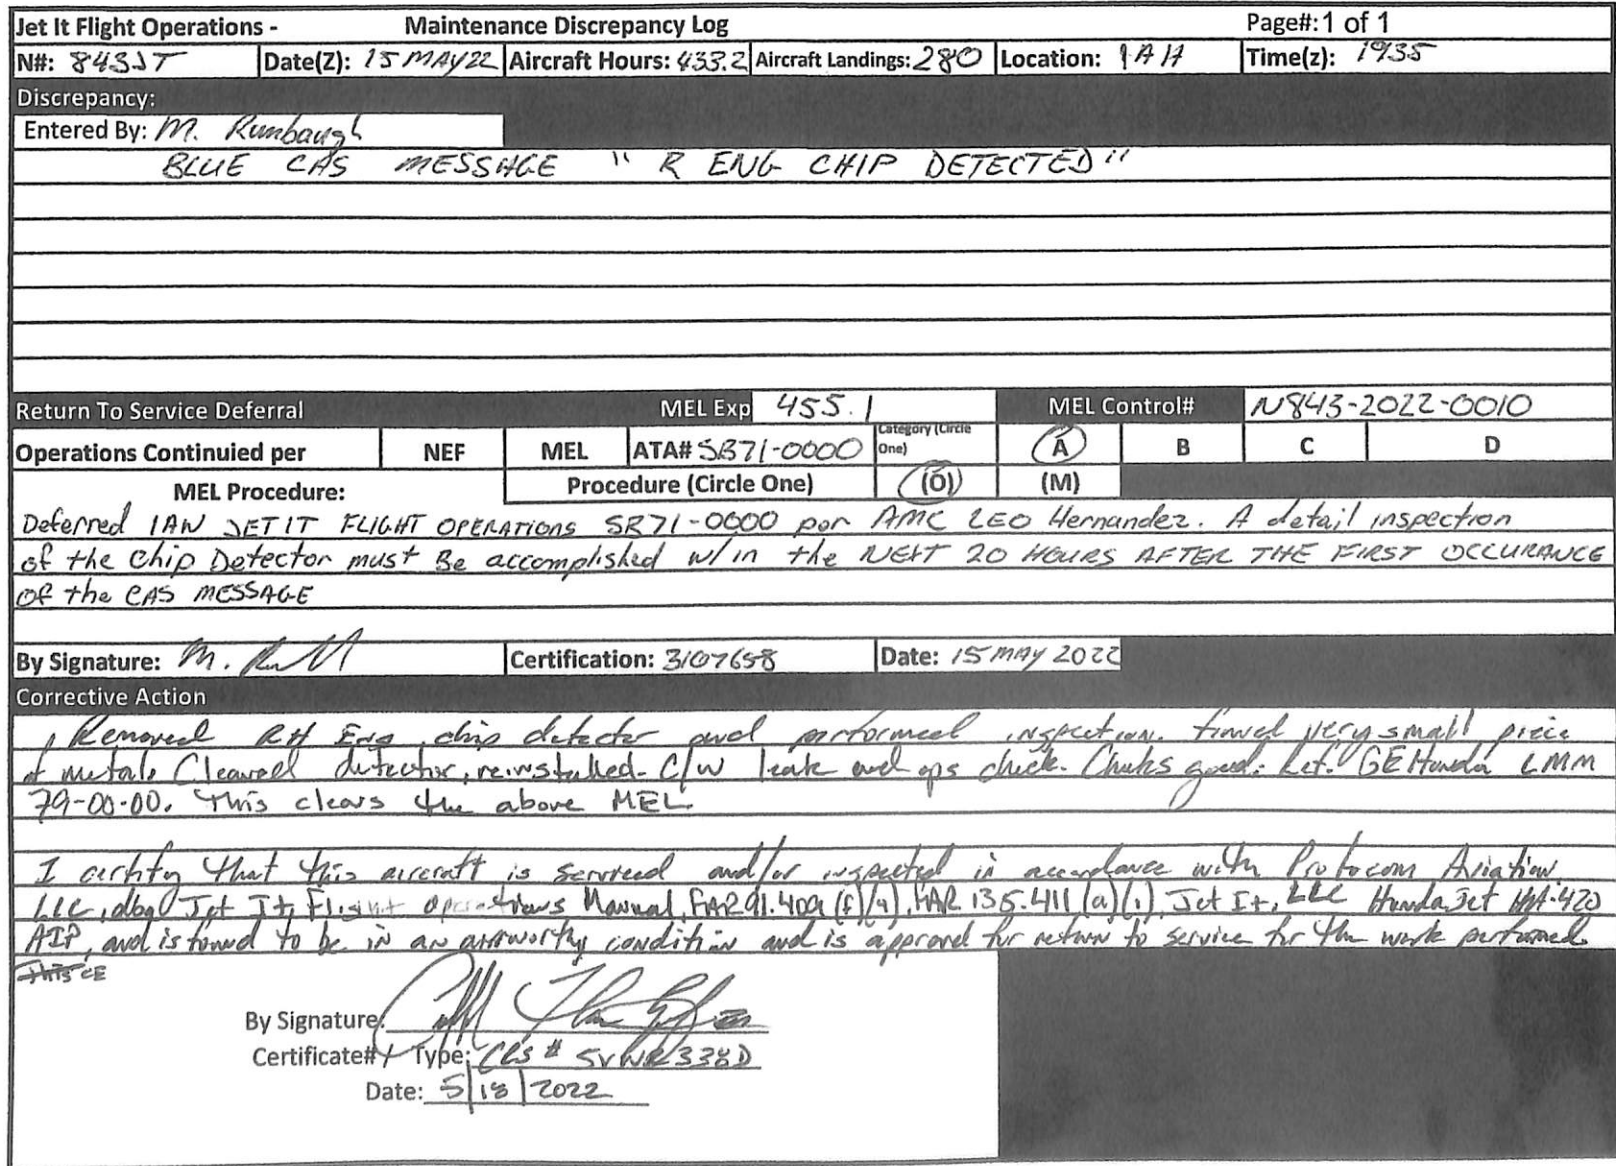 Jet It Flight Operations - Maintenance Discrepancy Log Page#: 1 of 1
N#: 843JT Date(Z): 15 MAY 22 Aircraft Hours: 433.2 Aircraft Landings: 280 Location: IAH Time(z): 1935
Discrepancy:
Entered By: M. Rumbaugh
BLUE CAS MESSAGE " R ENG CHIP DETECTED"
Return To Service Deferral MEL Exp 455.1 MEL Control# N843-2022-0010
Operations Continuied per NEF MEL ATA# SB71-0000 Category (Circle One) A B C D
MEL Procedure: Procedure (Circle One) (O) (M)
Deferred IAW JET IT FLIGHT OPERATIONS SB71-0000 per AMC LEO Hernandez. A detail inspection
of the Chip Detector must Be accomplished w/in the NEXT 20 HOURS AFTER THE FIRST OCCURANCE
OF the CAS MESSAGE
By Signature: Certification: 3107658 Date: 15 MAY 2022
Corrective Action
Removed RH Eng chip detector and performed inspection. found very small piece
of metal. Cleaned detector, reinstalled. C/W leak and ops check. Checks good. Ref. GE Honda LMM
79-00-00. This clears the above MEL
I certify that this aircraft is serviced and/or inspected in accordance with Aviation
LLC, dba Jet It, Flight Operations Manual, FAR 91.409 (f)(4), FAR 135.411 (a)(1), Jet It, LLC HondaJet HA-420
AIP, and is found to be in an airworthy condition and is approved for return to service for the work performed
This CE
By Signature:
Certificate# / Type: CRS # 5VWR338D
Date: 5/18/2022